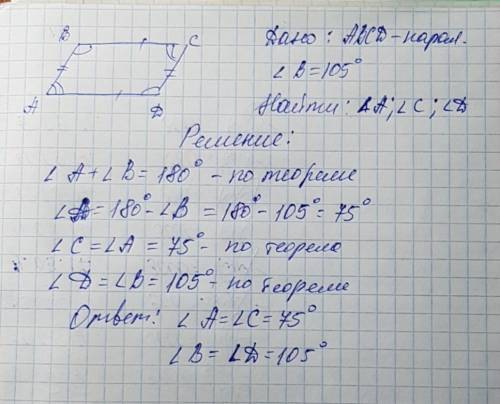 B C Дано: ABCD-парал.
∠B=105°
A D Найти: ∠A; ∠C; ∠D
Решение:
∠A+∠B=180° - по теореме
∠A=180°-∠B = 180°-105°=75°
∠C=∠A=75°- по теореме
∠D=∠B=105°- по теореме
Ответ: ∠A=∠C=75°
∠B=∠D=105°